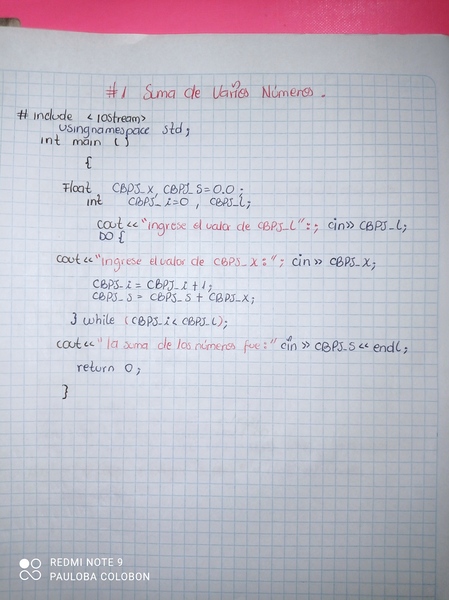 #1 Suma de Varios Números.
# include <iostream>
using namespace std;
int main ()
{
Float CBPJ_x, CBPJ_s=0.0;
int CBPJ_i=0, CBPJ_L;
cout<<"ingrese el valor de CBPJ_L":; cin>> CBPJ_L;
DO {
cout<<"ingrese el valor de CBPJ_x:"; cin>> CBPJ_x;
CBPJ_i = CBPJ_i + 1;
CBPJ_s = CBPJ_s + CBPJ_x;
} while (CBPJ_i < CBPJ_L);
cout<<"la suma de los números fue:" cin >> CBPJ_s << endl;
return 0;
}
REDMI NOTE 9
PAULOBA COLOBON